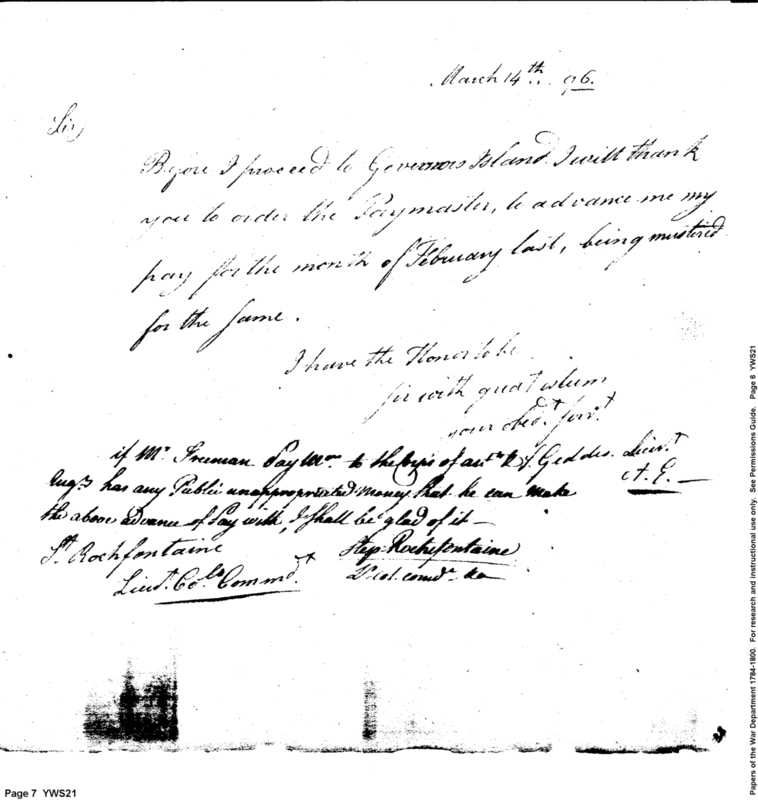 March 14th 96.
Sir,
Before I proceed to Governors Island. I will thank
you to order the Paymaster, to advance me my
pay for the month of February last, being mustered
for the same.
I have the Honor to be
sir with great esteem
your obedt servt
J. Geddes. Lieut
A. E.
if Mr Freeman Pay Mr to the Corps of & 
Engrs has any Public unappropriated Money that he can make
the above advance of Pay with, I shall be glad of it —
St Rochfontaine
Lieut. Col. Commdt
Step. Rochefontaine
Lt Col. comdt
Page 7 YWS21
Papers of the War Department 1784-1800. For research and instructional use only. See Permissions Guide. Page 6 YWS21